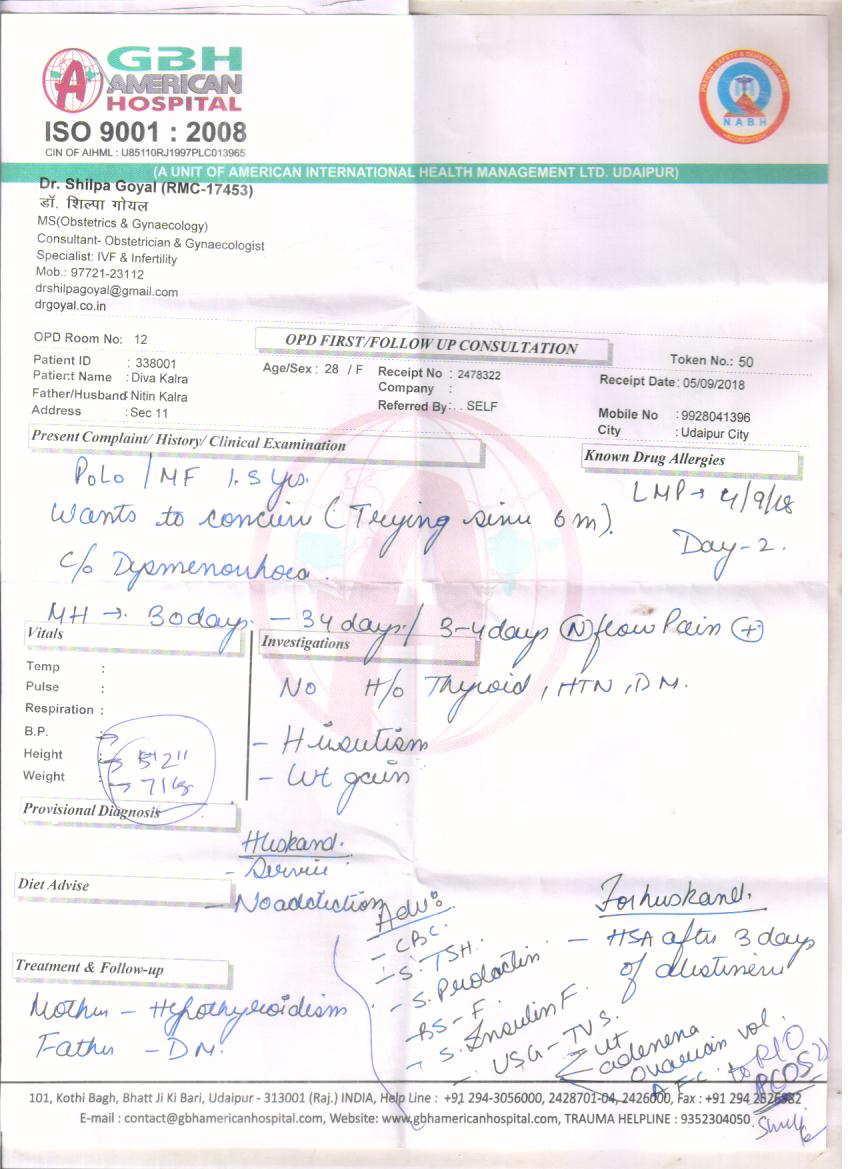 GBH
AMERICAN
HOSPITAL
ISO 9001 : 2008
CIN OF AIHML : U85110RJ1997PLC013965
PATIENT SAFETY & QUALITY OF CARE
NABH
(A UNIT OF AMERICAN INTERNATIONAL HEALTH MANAGEMENT LTD. UDAIPUR)
Dr. Shilpa Goyal (RMC-17453)
डॉ. शिल्पा गोयल
MS(Obstetrics & Gynaecology)
Consultant- Obstetrician & Gynaecologist
Specialist: IVF & Infertility
Mob.: 97721-23112
drshilpagoyal@gmail.com
drgoyal.co.in
OPD Room No: 12
OPD FIRST/FOLLOW UP CONSULTATION
Token No.: 50
Patient ID : 338001
Age/Sex : 28 / F
Receipt No : 2478322
Receipt Date : 05/09/2018
Patient Name : Diva Kalra
Company :
Father/Husband Nitin Kalra
Referred By : . . SELF
Mobile No : 9928041396
Address : Sec 11
City : Udaipur City
Present Complaint/ History/ Clinical Examination
Known Drug Allergies
PoLo / MF 1.5 yrs.
LMP → 4/9/18
Wants to concieve (Trying since 6 m).
Day - 2.
C/o Dysmenorrhoea.
MH → 30 days - 34 days / 3-4 days (N) flow Pain (+)
Vitals
Investigations
Temp :
Pulse :
Respiration :
B.P.
Height → 5'2"
Weight : → 71 kg
No H/o Thyroid, HTN, DM.
- Hirsutism
- Wt gain
Provisional Diagnosis
Husband.
- Service
- No addiction
Diet Advise
Adv:
- CBC.
- S. TSH.
- S. Prolactin
- BS - F.
- S. Insulin F.
- USG - TVS.
Ut
adenexa
Ovarian vol.
AFC to R/O
PCOS
For husband.
- HSA after 3 days
of abstinence
Treatment & Follow-up
Mother - Hypothyroidism
Father - DM.
101, Kothi Bagh, Bhatt Ji Ki Bari, Udaipur - 313001 (Raj.) INDIA, Help Line : +91 294-3056000, 2428701-04, 2426000, Fax : +91 294
E-mail : contact@gbhamericanhospital.com, Website: www.gbhamericanhospital.com, TRAUMA HELPLINE : 9352304050.